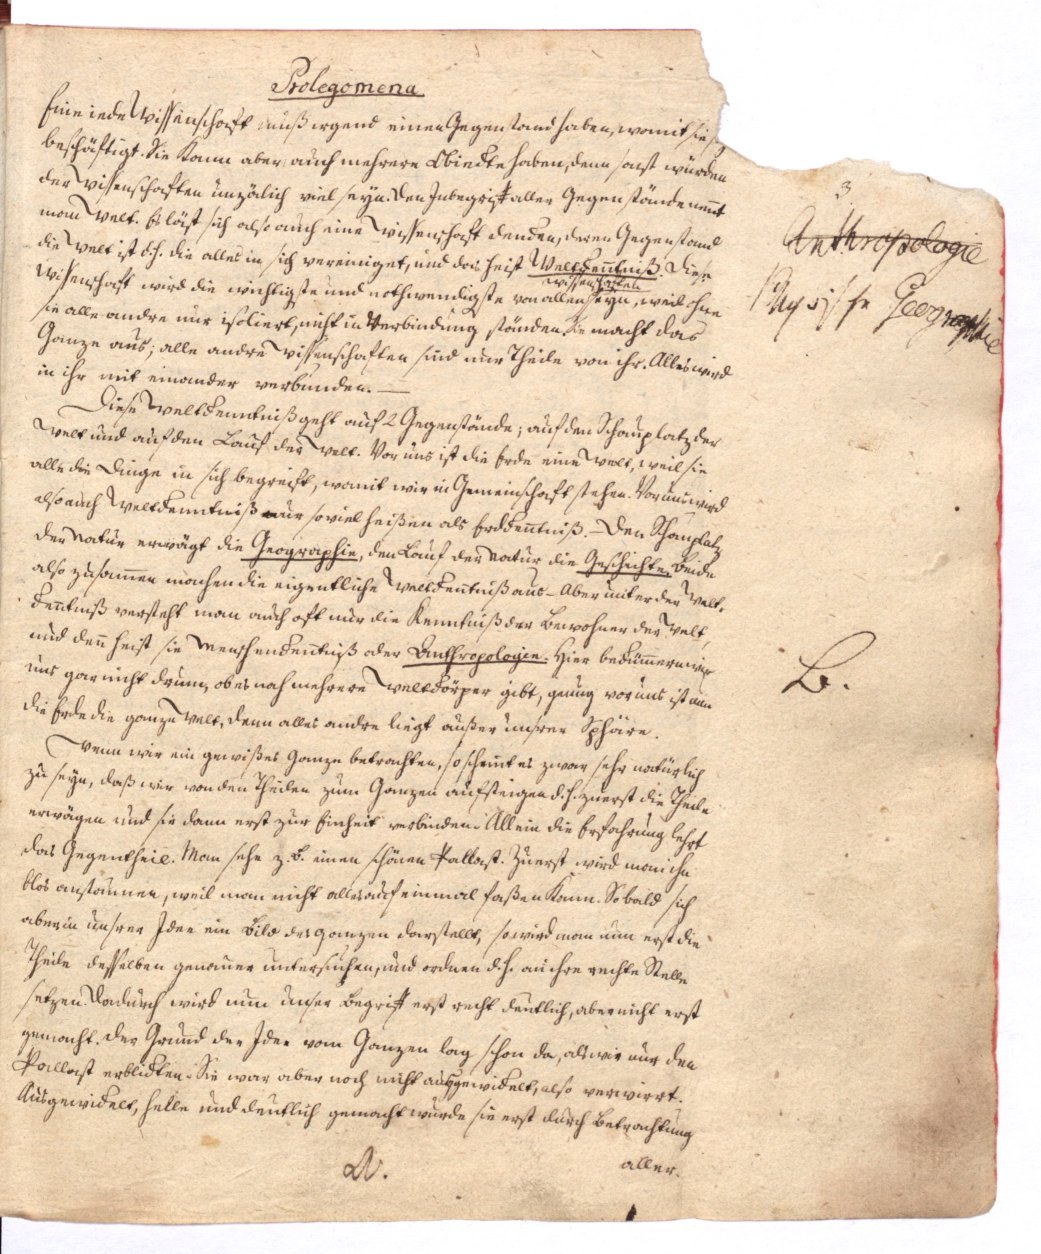 Prolegomena
Eine iede Wissenschaft muß irgend einen Gegenstand haben, womit sie
beschäftigt. Sie kann aber auch mehrere Obiecte haben, denn sonst würden
der Wissenschaften unzälich viel seyn. Den Inbegriff aller Gegenstände nennt
man Welt. Es läst sich also auch eine Wissenschaft denken, deren Gegenstand
die Welt ist d.h. die alles in sich vereiniget, und das heist Weltkentniß. Diese
Wissenschaften
Wissenschaft wird die wichtigste und nothwendigste von allen seyn, weil ohne
sie alle andre nur isoliert, nicht in Verbindung ständen. Sie macht das
Ganze aus; alle andre Wissenschaften sind nur Theile von ihr. Alles wird
in ihr mit einander verbunden. —
Diese Weltkenntniß geht auf 2 Gegenstände; auf den Schauplatz der
Welt und auf den Lauf der Welt. Vor uns ist die Erde eine Welt, weil sie
alle die Dinge in sich begreift, womit wir in Gemeinschaft stehen. Vor uns wird
also auch Weltkenntniß nur so viel heißen als Erdkentniß. – Den Schauplatz
der Natur erwägt die Geographie, den Lauf der Natur die Geschichte. Beide
also zusammen machen die eigentliche Weltkentniß aus – Aber unter der Welt-
kentniß versteht man auch oft nur die Kenntniß der Bewohner der Welt,
und denn heist sie Menschenkentniß oder Anthropologie. Hier bekümmern wir
uns gar nicht drum, ob es noch mehrere Weltkörper gibt, genug vor uns ist nun
die Erde die ganze Welt, denn alles andre liegt außer unsrer Sphäre.
Wenn wir ein gewißes Ganze betrachten, so scheint es zwar sehr natürlich
zu seyn, daß wir von den Theilen zum Ganzen aufsteigen d.h. zuerst die Theile
erwägen und sie dann erst zur Einheit verbinden. Allein die Erfahrung lehrt
das Gegentheil. Man sehe z.B. einen schönen Pallast. Zuerst wird man ihn
blos anstaunen, weil man nicht alles auf einmal faßen kann. Sobald sich
aber in unsrer Idee ein Bild des Ganzen darstellt, so wird man nun erst die
Theile desselben genauer untersuchen, und ordnen d.h. an ihre rechte Stelle
setzen. Dadurch wird nun unser Begriff erst recht deutlich, aber nicht erst
gemacht. Der Grund der Idee vom Ganzen lag schon da, als wir nur den
Pallast erblickten. Sie war aber noch nicht ausgewickelt, also verwirrt.
Ausgewickelt, helle und deutlich gemacht wurde sie erst durch Betrachtung
aller.
A.
3
Anthropologie
Physische Geographie
B.